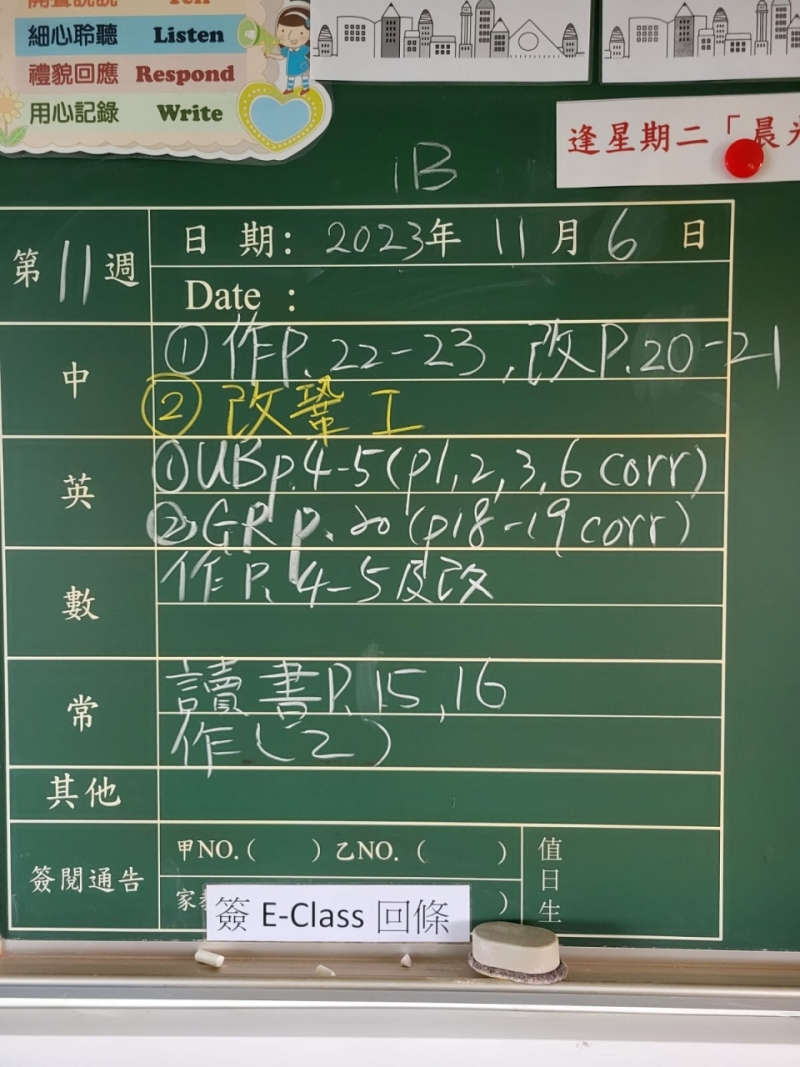 細心聆聽 Listen
禮貌回應 Respond
用心記錄 Write
逢星期二「晨
1B
第11週
日期: 2023年 11月6日
Date :
中
①作P.22-23,改P.20-21
②改鞏工
英
①UBp.4-5(p1,2,3,6 corr)
②GR p.20(p18-19corr)
數
作P.4-5及改
常
讀書P.15,16
作(2)
其他
簽閱通告
甲NO.( ) 乙NO.( )
家 )
值日生
簽 E-Class 回條